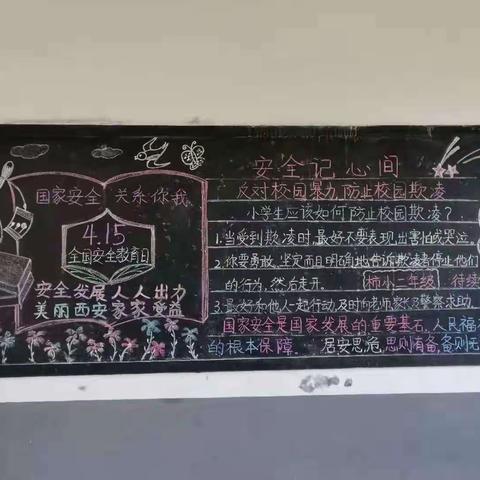 国家安全 关系你我
4.15
全国安全教育日
安全发展人人出力
美丽西安家家受益
安全记心间
反对校园暴力,防止校园欺凌
小学生应该如何防止校园欺凌?
1.当受到欺凌时,最好不要表现出害怕或哭泣。
2.你要勇敢、坚定而且明确地告诉欺凌者停止他们
的行为,然后走开。
柿小二年级 待续
3.最好和他人一起行动,及时向老师家长及警察求助。
国家安全是国家发展的重要基石,人民福
的根本保障。 居安思危,思则有备,备则无